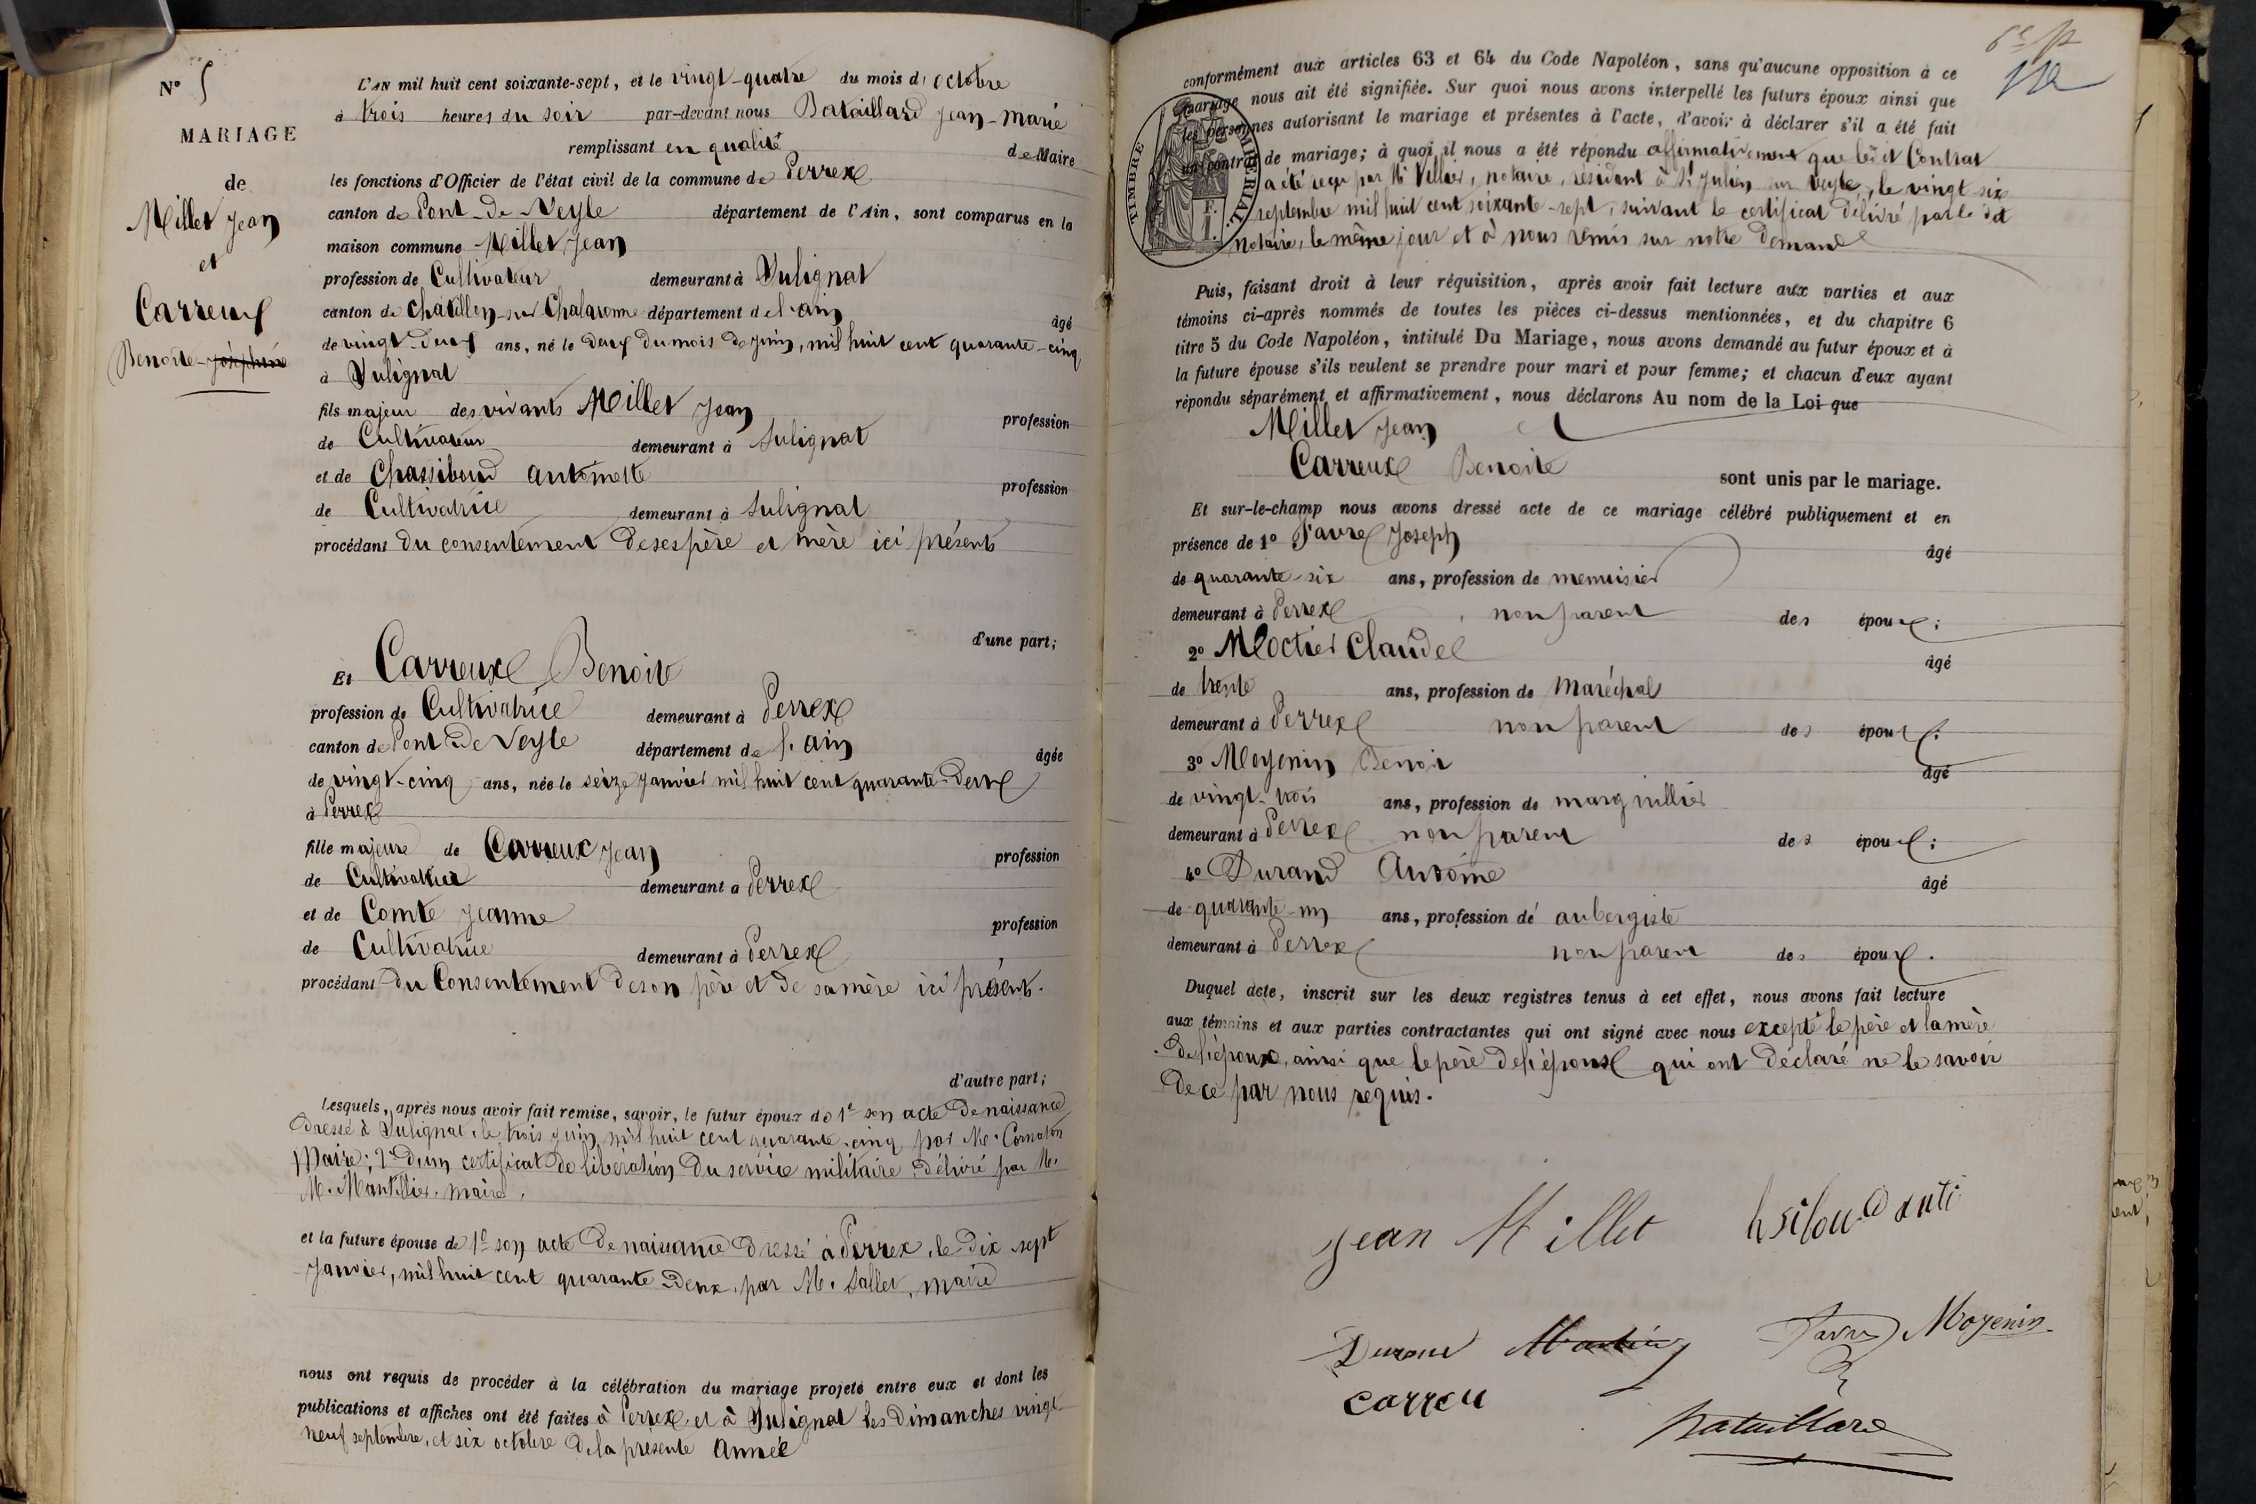 N° 5
MARIAGE
de
Millet Jean
et
Carreux
Benoite Joséphine
L'AN mil huit cent soixante-sept, et le vingt-quatre du mois d'octobre
à trois heures du soir par-devant nous Bataillard Jean-Marie
remplissant en qualité de Maire
les fonctions d'Officier de l'état civil de la commune de Perrex
canton de Pont-de-Veyle département de l'Ain, sont comparus en la
maison commune Millet Jean
profession de Cultivateur demeurant à Sulignat
canton de Châtillon-sur Chalaronne département de l'ain âgé
de vingt-deux ans, né le deux du mois de juin, mil huit cent quarante-cinq
à Sulignat
fils majeur des vivants Millet Jean profession
de Cultivateur demeurant à Sulignat
et de Chassiboud antoinette profession
de Cultivatrice demeurant à Sulignat
procédant du consentement de ses père et mère ici présents
d'une part;
Et Carreux Benoite
profession de Cultivatrice demeurant à Perrex
canton de Pont de Veyle département de l'ain âgée
de vingt-cinq ans, née le seize janvier mil huit cent quarante-deux
à Perrex
fille majeure de Carreux Jean profession
de Cultivateur demeurant à Perrex
et de Comte Jeanne profession
de Cultivatrice demeurant à Perrex
procédant du Consentement de son père et de sa mère ici présents.
d'autre part;
Lesquels, après nous avoir fait remise, savoir, le futur époux de 1° son acte de naissance
dressé à Sulignat, le trois juin mil huit cent quarante-cinq par Mr. Cornaton
Maire; 2° d'un certificat de libération du service militaire délivré par Mr.
M. Mantellier, maire.
et la future épouse de 1° son acte de naissance dressé à Perrex, le dix sept
Janvier, mil huit cent quarante deux, par M. Sallet, maire
nous ont requis de procéder à la célébration du mariage projeté entre eux et dont les
publications et affiches ont été faites à Perrex, et à Sulignat les Dimanches vingt
neuf septembre, et six octobre de la présente année
conformément aux articles 63 et 64 du Code Napoléon, sans qu'aucune opposition à ce
mariage nous ait été signifiée. Sur quoi nous avons interpellé les futurs époux ainsi que
les personnes autorisant le mariage et présentes à l'acte, d'avoir à déclarer s'il a été fait
un contrat de mariage; à quoi il nous a été répondu affirmativement que ledit Contrat
a été reçu par Me Villier, notaire, résidant à St Julien sur Veyle, le vingt six
septembre mil huit cent soixante-sept, suivant le certificat délivré par le dit
notaire, le même jour et à nous remis sur notre demande
TIMBRE IMPÉRIAL
Puis, faisant droit à leur réquisition, après avoir fait lecture aux parties et aux
témoins ci-après nommés de toutes les pièces ci-dessus mentionnées, et du chapitre 6
titre 5 du Code Napoléon, intitulé Du Mariage, nous avons demandé au futur époux et à
la future épouse s'ils veulent se prendre pour mari et pour femme; et chacun d'eux ayant
répondu séparément et affirmativement, nous déclarons Au nom de la Loi que
Millet Jean
Carreux Benoite sont unis par le mariage.
Et sur-le-champ nous avons dressé acte de ce mariage célébré publiquement et en
présence de 1° Favre Joseph âgé
de quarante-six ans, profession de menuisier
demeurant à Perrex non parent des époux;
2° Moctier Claude âgé
de trente ans, profession de Maréchal
demeurant à Perrex non parent des époux;
3° Moyenin Benoit âgé
de vingt-trois ans, profession de marguillier
demeurant à Perrex non parent des époux;
4° Durand Antoine âgé
de quarante-un ans, profession de aubergiste
demeurant à Perrex non parent des époux.
Duquel acte, inscrit sur les deux registres tenus à cet effet, nous avons fait lecture
aux témoins et aux parties contractantes qui ont signé avec nous excepté le père et la mère
de l'époux, ainsi que le père de l'épouse qui ont déclaré ne le savoir
de ce par nous requis.
Jean Millet
Durand Favre Moyenin
Carreu
Bataillard